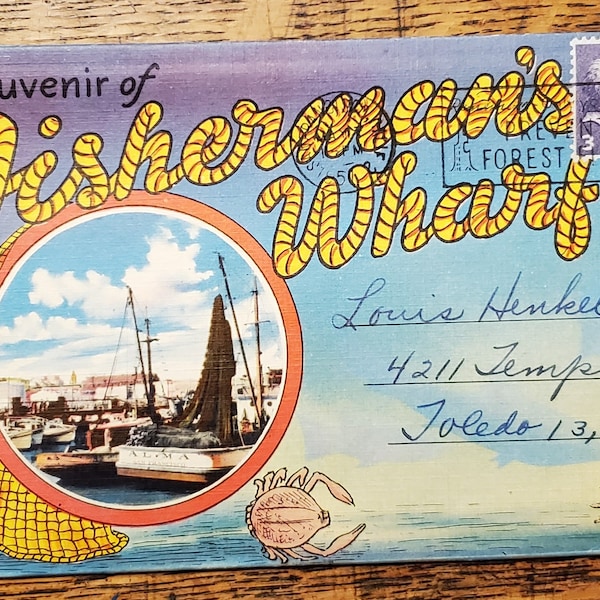 ouvenir of
Fisherman's
Wharf
PM
KEE
FOREST
3
Louis Henkel
4211 Temp
Toledo 13,
ALMA